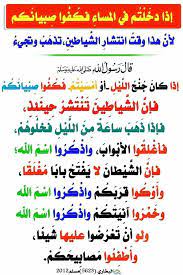 إذا دخلتم في المساء فكفوا صبيانكم
لأن هذا وقت انتشار الشياطين، تذهب وتجيء
قال رسول الله ﷺ
إذا كان جنح الليل -أو أمسيتم- فكفوا صبيانكم
فإن الشياطين تنتشر حينئذ،
فإذا ذهب ساعة من الليل فخلوهم،
فأغلقوا الأبواب، واذكروا اسم الله
فإن الشيطان لا يفتح بابا مغلقا،
وأوكوا قربكم واذكروا اسم الله
وخمروا آنيتكم واذكروا اسم الله
ولو أن تعرضوا عليها شيئا،
وأطفئوا مصابيحكم.
البخاري (5623) مسلم 2012